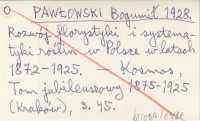 PAWŁOWSKI Bogumił 1928.
Rozwój florystyki i systema-
tyki roślin w Polsce w latach
1872-1925. — Kosmos,
Tom jubileuszowy 1875-1925
(Kraków), s. 45.